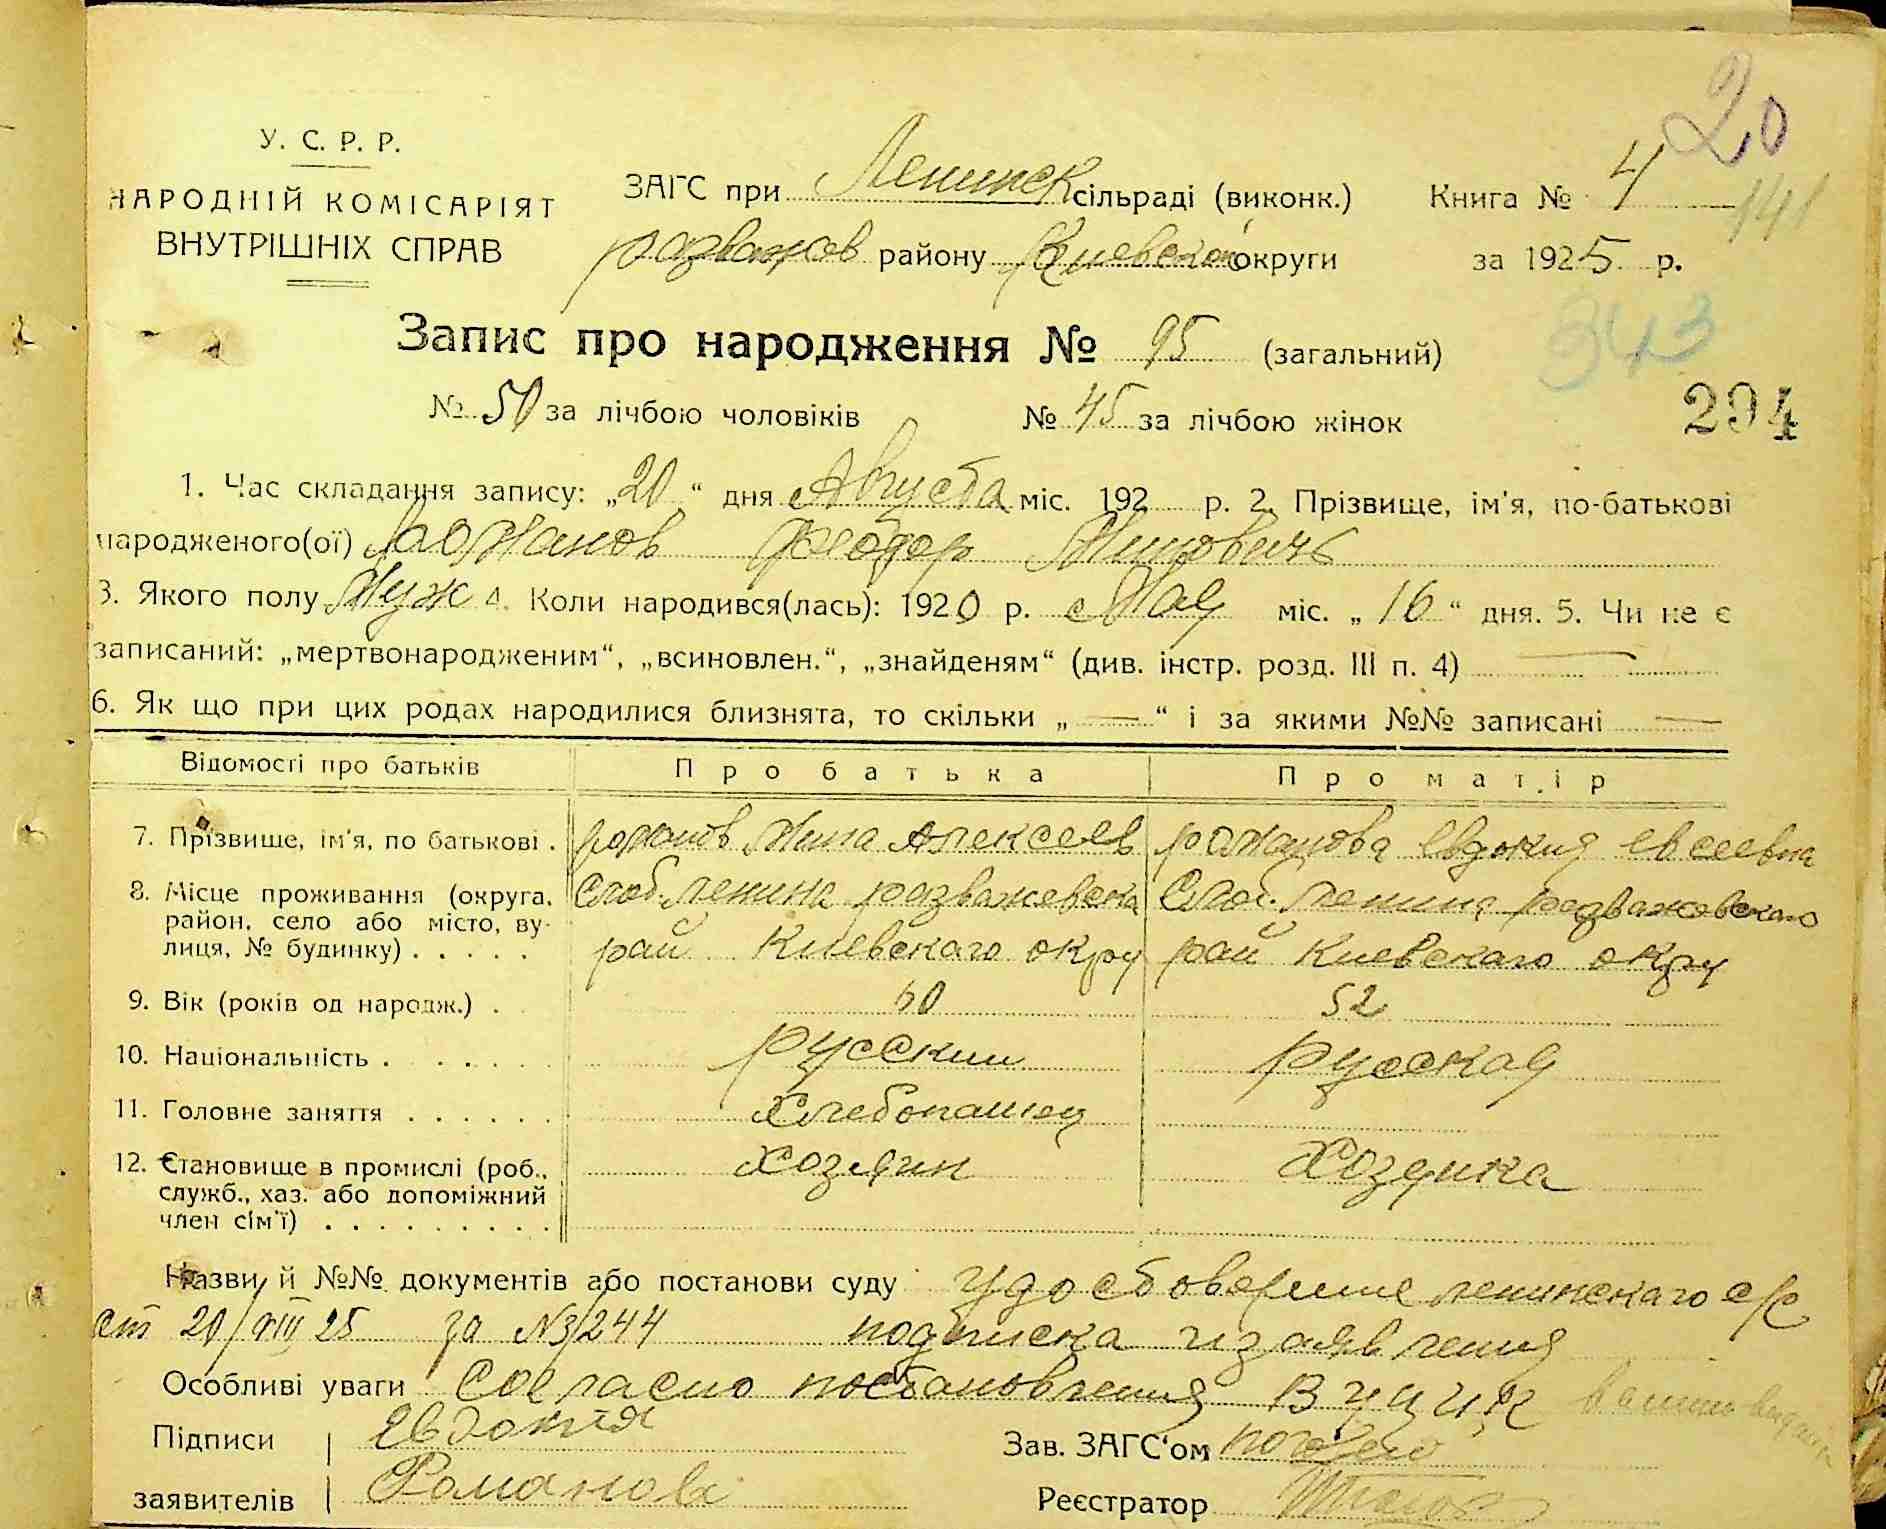 20
У. С. Р. Р.
НАРОДНІЙ КОМІСАРІЯТ
ВНУТРІШНІХ СПРАВ
ЗАГС при Ленинск сільраді (виконк.) Книга № 4 141
розважев району Киевской округи за 1925 р.
Запис про народження № 95 (загальний) 343
№ 50 за лічбою чоловіків № 45 за лічбою жінок 294
1. Час складання запису: „20“ дня Августа міс. 192 р. 2. Прізвище, ім'я, по-батькові
народженого(ої) Романов Феодор Миновичь
3. Якого полу Муж 4. Коли народився(лась): 1920 р. Мая міс. „16“ дня. 5. Чи не є
записаний: „мертвонародженим“, „всиновлен.“, „знайденям“ (див. інстр. розд. III п. 4) —
6. Як що при цих родах народилися близнята, то скільки „—“ і за якими №№ записані —
Відомості про батьків Про батька Про матір
7. Прізвище, ім'я, по батькові . романов Мина Алексеев романова Евдокия Евсеевна
8. Місце проживання (округа, Слоб. Ленина розважевска Слоб. Ленина розважевскаго
район, село або місто, ву-
лиця, № будинку) . . . . . рай Киевскаго окру рай Киевскаго окру
9. Вік (років од народж.) . 60 52
10. Національність . . . . . . русский русская
11. Головне заняття . . . . . . Хлебопашец
12. Становище в промислі (роб., Хозяин Хозяика
служб., хаз. або допоміжний
член сім'ї) . . . . . . . . .
Назви й №№ документів або постанови суду удостоверение ленинскаго с/с
от 20/VIII 25 за №3/244 подписка и заявления
Особливі уваги Согласно постановления ВУЦИК
Підписи Евдокия Зав. ЗАГС'ом
заявителів Романова Реєстратор